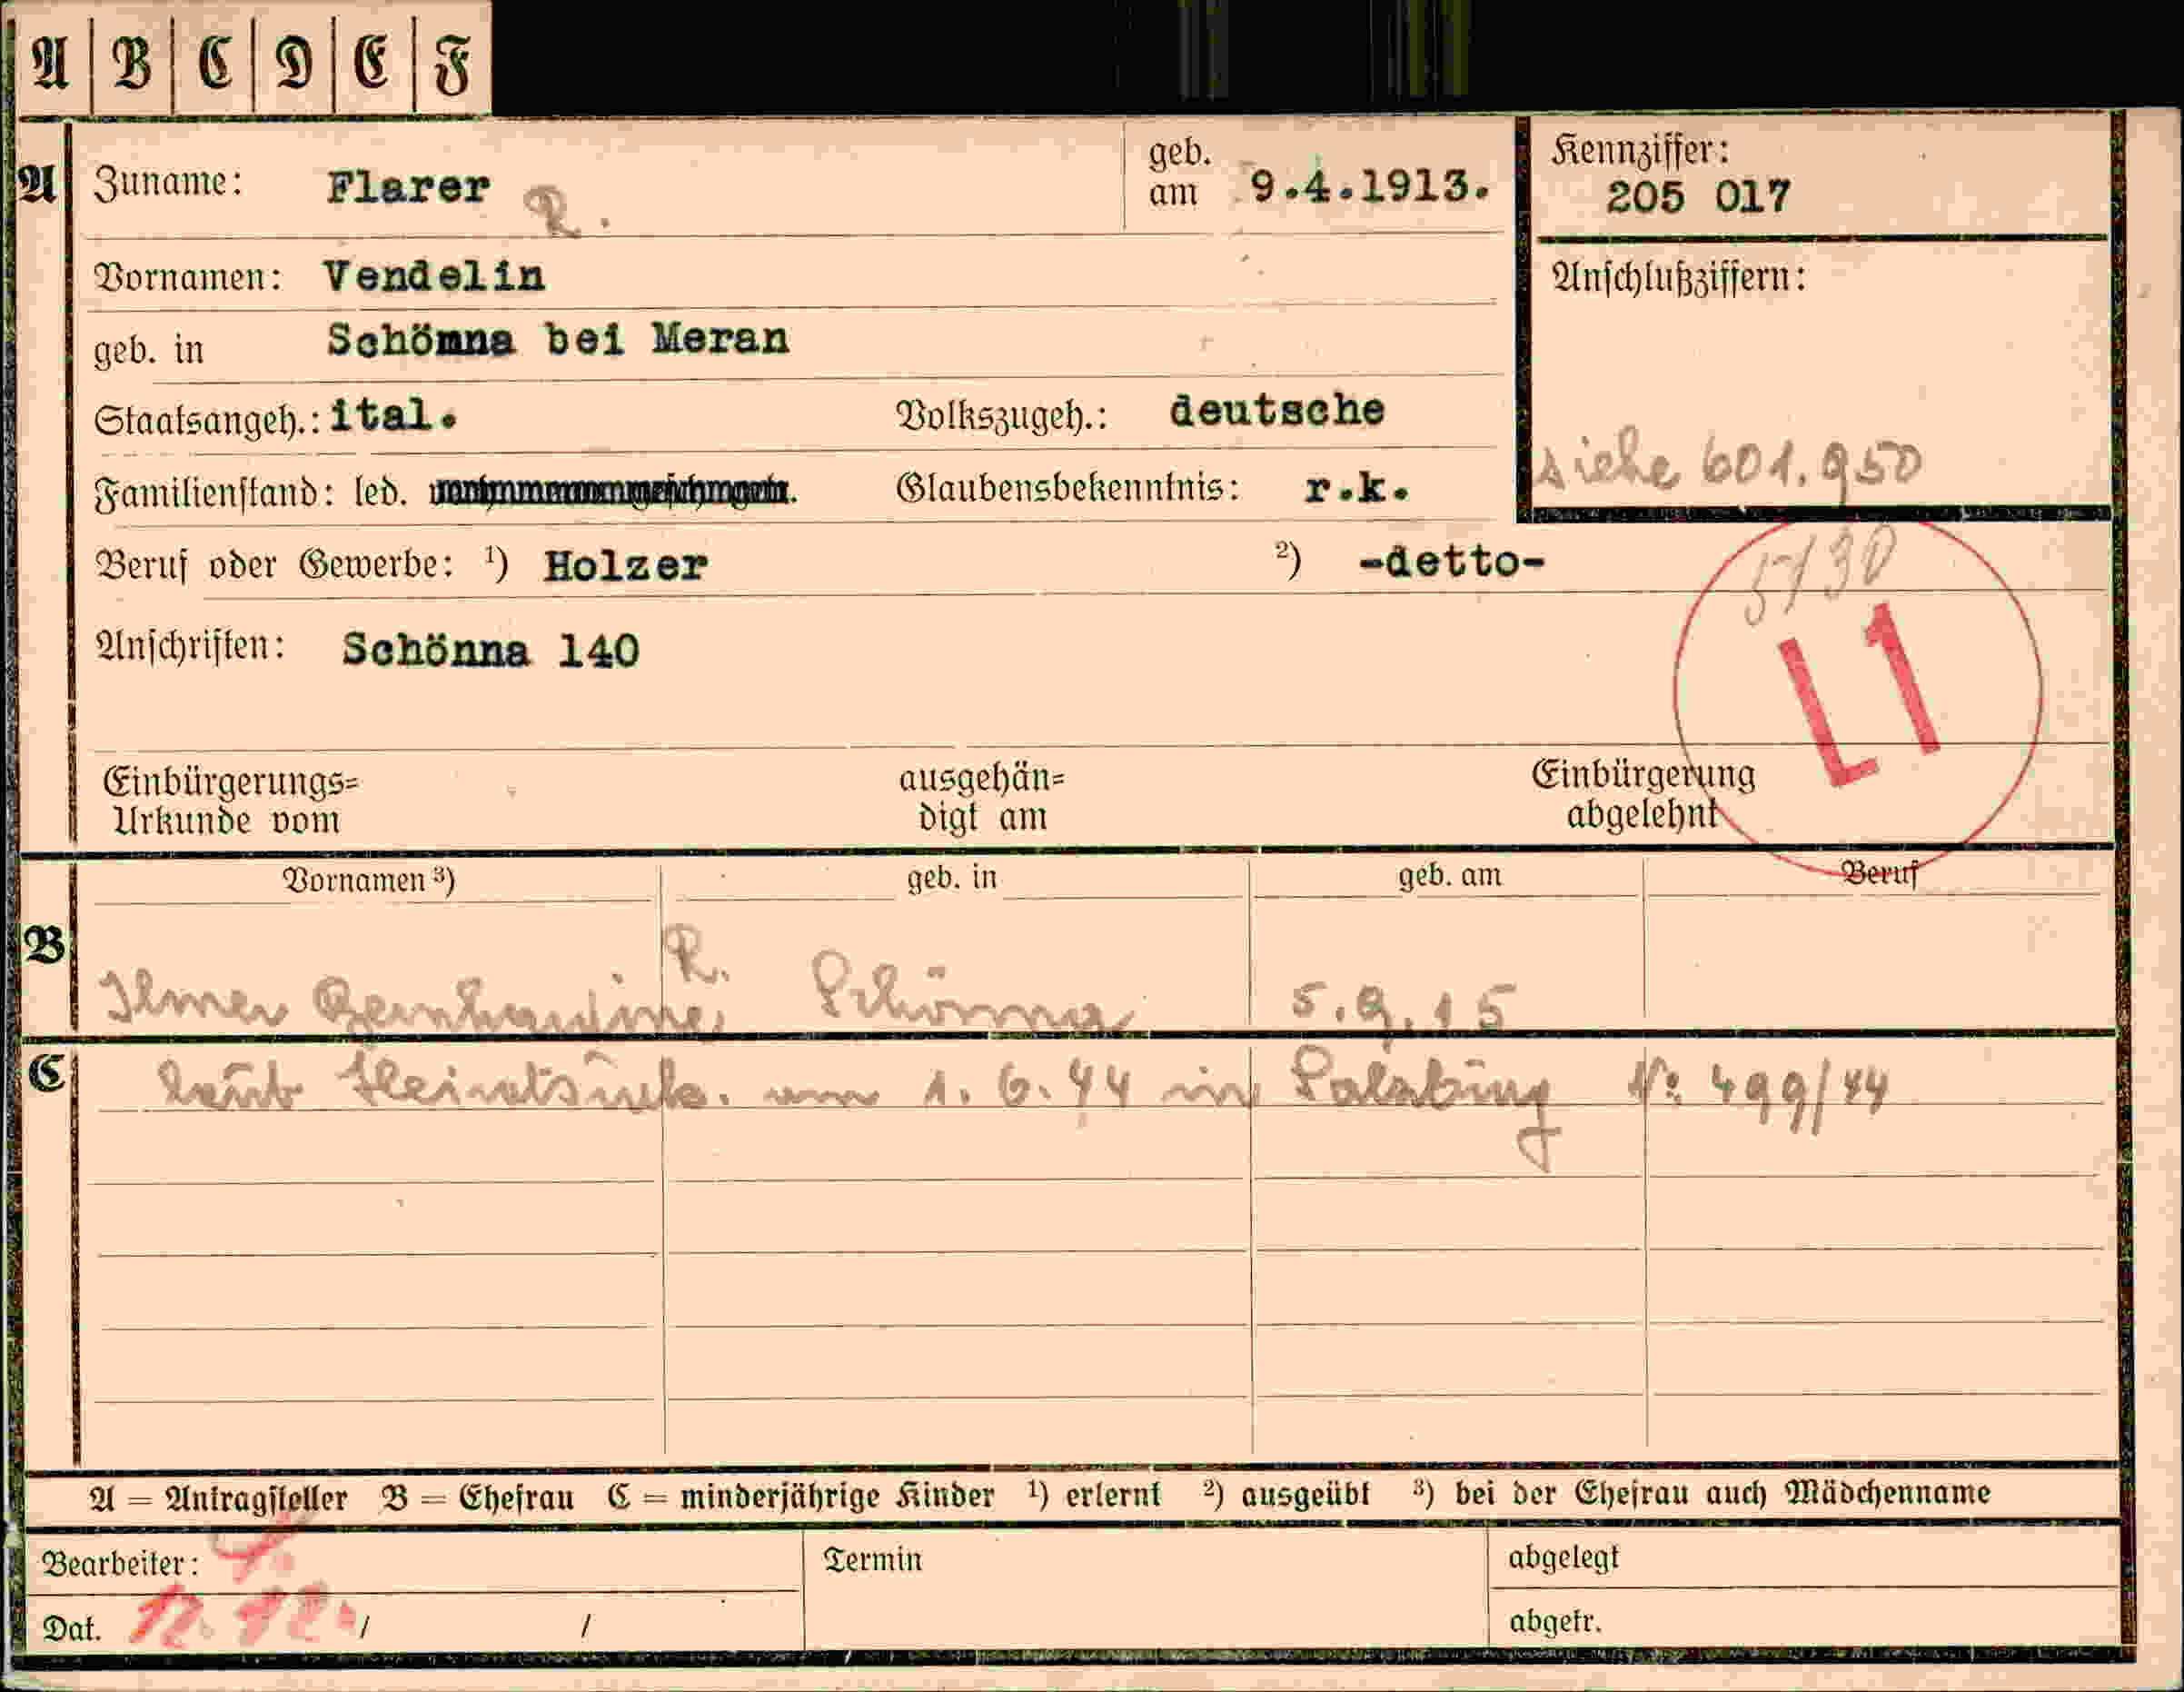 A B C D E F
A Zuname: Flarer R. geb. am 9.4.1913. Kennziffer: 205 017
Vornamen: Vendelin Anschlußziffern:
geb. in Schömna bei Meran
Staatsangeh.: ital. Volkszugeh.: deutsche
siehe 601.950
Familienstand: led. Glaubensbekenntnis: r.k.
Beruf oder Gewerbe: 1) Holzer 2) -detto- 5/30
Anschriften: Schönna 140 L1
Einbürgerungs= ausgehän= Einbürgerung
Urkunde vom digt am abgelehnt
Vornamen 3) geb. in geb. am Beruf
B R.
Ilmer Schönna 5.9.15
C laut Heiratsurk. am 1.6.44 in Salzburg Nr. 499/44
A = Antragsteller B = Ehefrau C = minderjährige Kinder 1) erlernt 2) ausgeübt 3) bei der Ehefrau auch Mädchenname
Bearbeiter: Termin abgelegt
Dat. 12.12. / / abgetr.